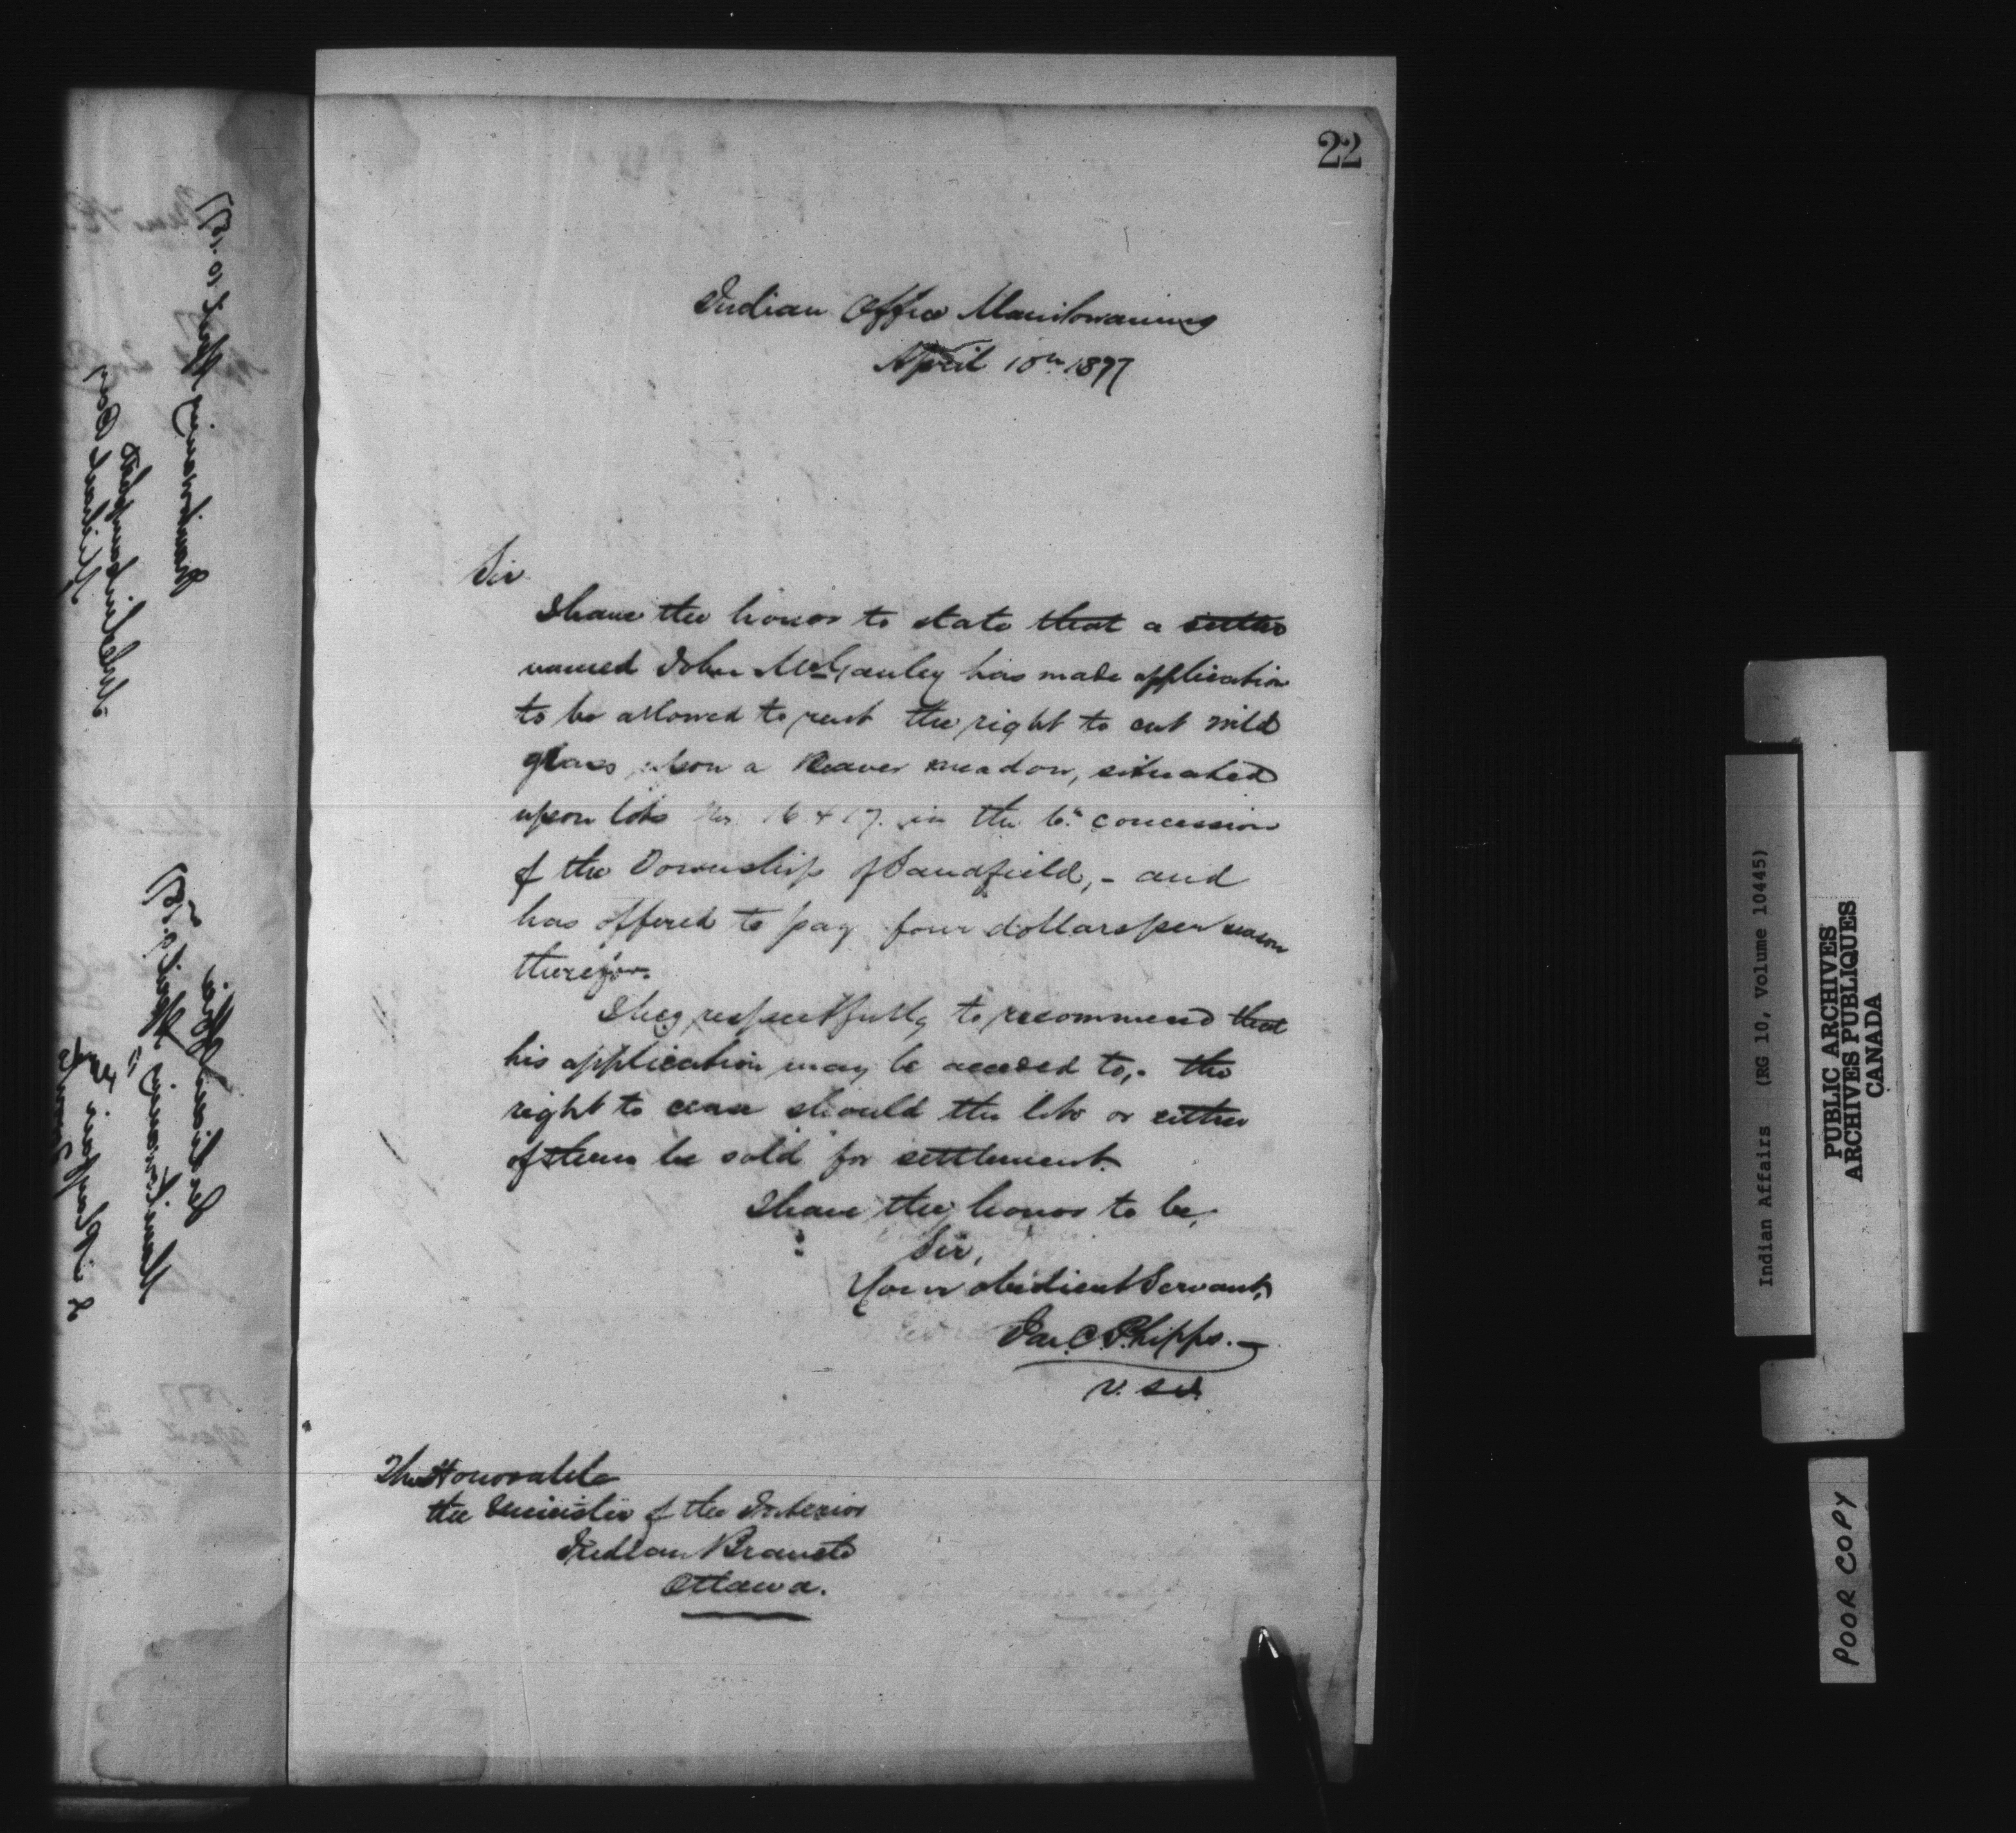 22
Indian Office Manitowaning
April 10th 1877
Sir
I have the honor to state that a settler
named John McGauley has made application
to be allowed to rent the right to cut wild
grass upon a Beaver meadow, situated
upon lots Nos 16 & 17. in the 6th concession
of the Township of Sandfield, - and
has offered to pay four dollars per season
therefor.
I beg respectfully to recommend that
his application may be acceded to, - the
right to cease should the lots or either
of them be sold for settlement.
I have the honor to be,
Sir,
Your obedient Servant,
Jas. C. Phipps. -
V. S. I.
The Honorable
the Minister of the Interior
Indian Branch
Ottawa.
Indian Affairs (RG 10, Volume 10445)
PUBLIC ARCHIVES
ARCHIVES PUBLIQUES
CANADA
POOR COPY